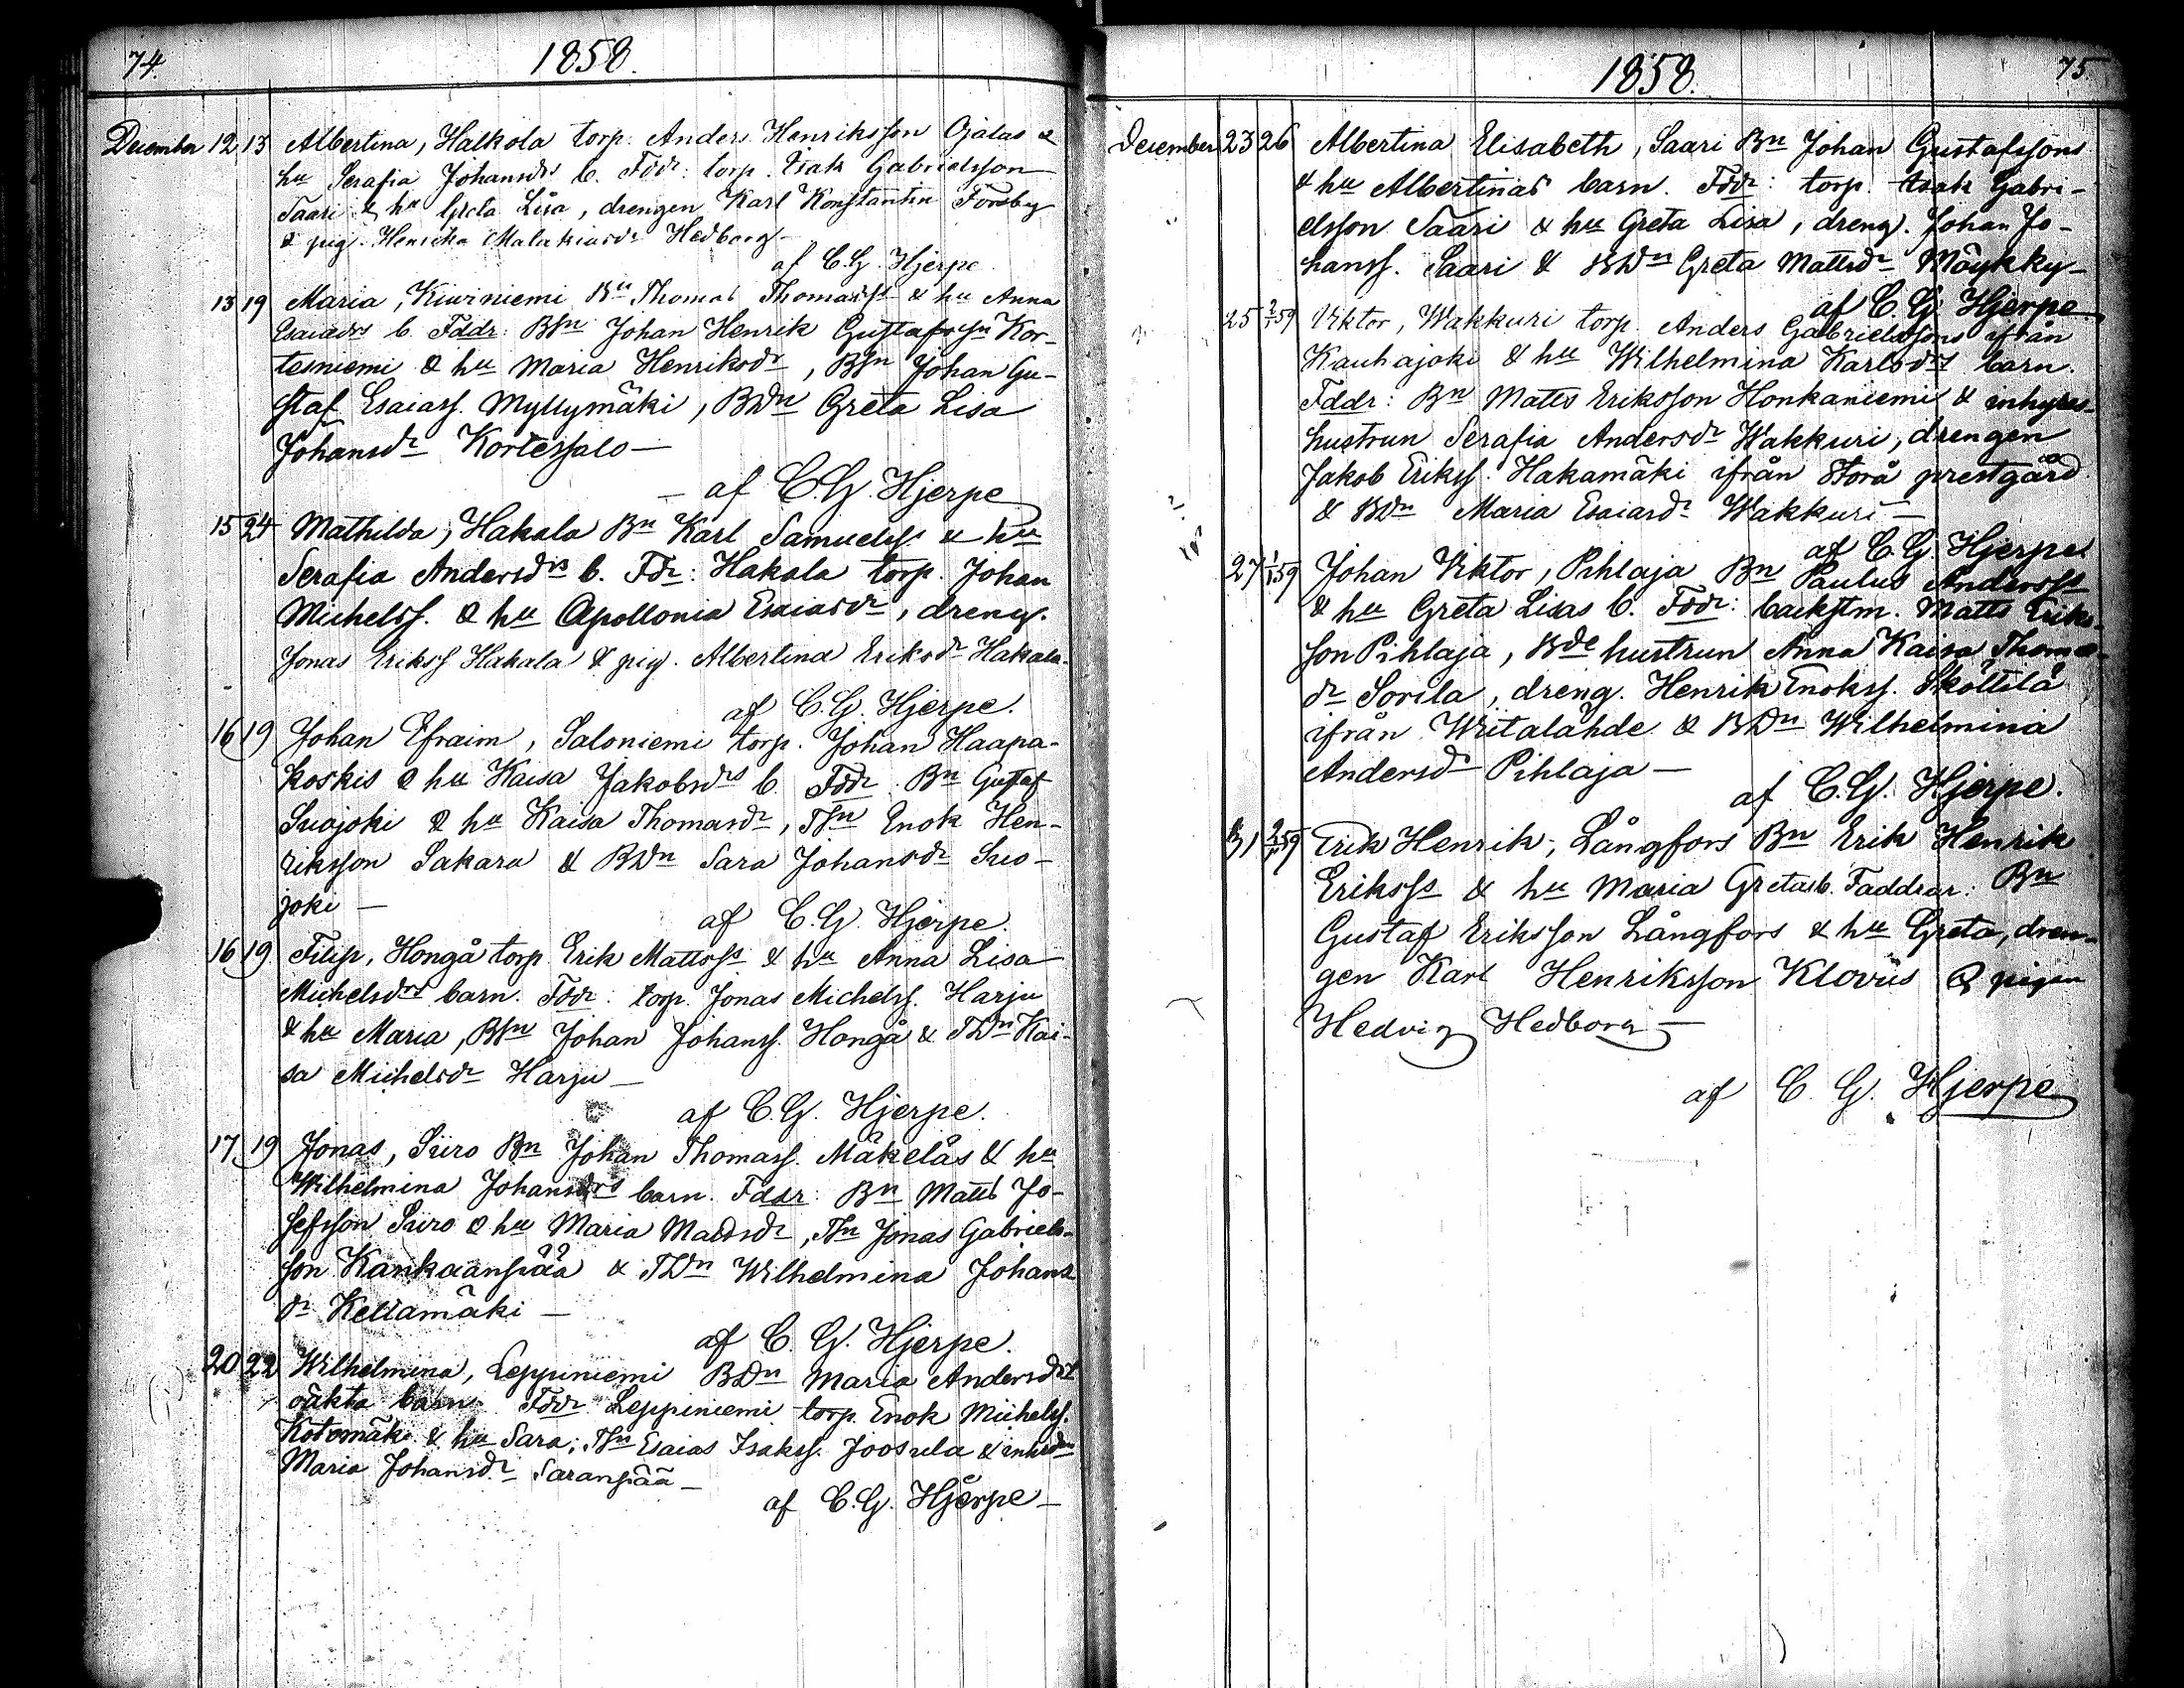 74.
1858.
December 12 13 Albertina, Halkola torp. Anders Henriksson Gjälas &
hu Serafia Johansdrs b. Fddr: torp. Isak Gabrielsson
Saari & hu Greta Lisa, drengen Karl Konstantin Forsby
& pig. Henrika Malakiasdr Hedborg —
af C.G. Hjerpe
13 19 Maria, Kiviniemi Bn Thomas Thomass. & hu Anna
Esaiadrs b. Fddr: BSn Johan Henrik Gustafsson Kor-
tesniemi & hu Maria Henriksdr, BSn Johan Gu-
staf Esaiass. Myllymäki, BDn Greta Lisa
Johansdr Kortessalo —
— af C.G. Hjerpe
15 24 Mathilda, Hakala Bn Karl Samuelss & hu
Serafia Andersdrs b. Fdr: Hakala torp. Johan
Michelss. & hu Apollonia Esaiasdr, dreng.
Jonas Erikss Hakala & pig. Albertina Eriksdr Hakala.
af C.G. Hjerpe.
16 19 Johan Efraim, Saloniemi torp. Johan Haapa-
koskis & hu Kaisa Jakobsdrs b. Fddr: Bn Gustaf
Suojoki & hu Kaisa Thomasdr, TSn Enok Hen-
riksson Sakara & BDn Sara Johansdr Suo-
joki —
af C.G. Hjerpe.
16 19 Filip, Hongå torp. Erik Mattss & hu Anna Lisa
Michelsdrs barn. Fddr: torp. Jonas Michelss. Harju
& hu Maria, BSn Johan Johanss. Hongå & TDn Kai-
sa Michelsdr Harju —
af C.G. Hjerpe.
17 19 Jonas, Siiro Bn Johan Thomass. Mäkeläs & hu
Wilhelmina Johansdrs barn. Fddr: Bn Matts Jo-
sefsson Siiro & hu Maria Mattsdr, TSn Jonas Gabriels-
son Kankaanpää & TDn Wilhelmina Johans
dr Keltamäki —
af C.G. Hjerpe.
20 22 Wilhelmina, Leppiniemi BDn Maria Andersdrs
oäkta barn. Fddr Leppiniemi torp. Enok Michelss.
Kotomäki & hu Sara; TSn Esaias Isakss. Joosula &
Maria Johansdr Saranpää —
af C.G. Hjerpe —
1858.
75.
December 23 26 Albertina Elisabeth, Saari Bn Johan Gustafssons
& hu Albertinas barn. Fddr: torp. Isak Gabri-
elsson Saari & hu Greta Lisa, dreng. Johan Jo-
hanss. Saari & BDn Greta Mattsdr Mäykky —
af C.G. Hjerpe.
25 2/1 59 Viktor, Wakkuri torp. Anders Gabrielssons ifrån
Kauhajoki & hu Wilhelmina Karlsdrs barn.
Fddr: Bn Matts Eriksson Honkaniemi & inhyses-
hustrun Serafia Andersdr Wakkuri, drengen
Jakob Erikss. Hakamäki ifrån Storå prestgård
& BDn Maria Esaiasdr Wakkuri —
af C.G. Hjerpe.
27 1/1 59 Johan Viktor, Pihlaja Bn Paulus Anderss
& hu Greta Lisas b. Fddr: backstm. Matts Eriks-
son Pihlaja, Bde hustrun Anna Kaisa Thomas-
dr Sorila, dreng. Henrik Enokss. Sköttilä
ifrån Wiitalähde & BDn Wilhelmina
Andersdr Pihlaja —
af C.G. Hjerpe.
31 59 Erik Henrik, Långfors Bn Erik Henrik
Erikss & hu Maria Gretas b. Faddrar: Bn
Gustaf Eriksson Långfors & hu Greta, dren-
gen Karl Henriksson Klovus & pigan
Hedvig Hedborg —
af C.G. Hjerpe